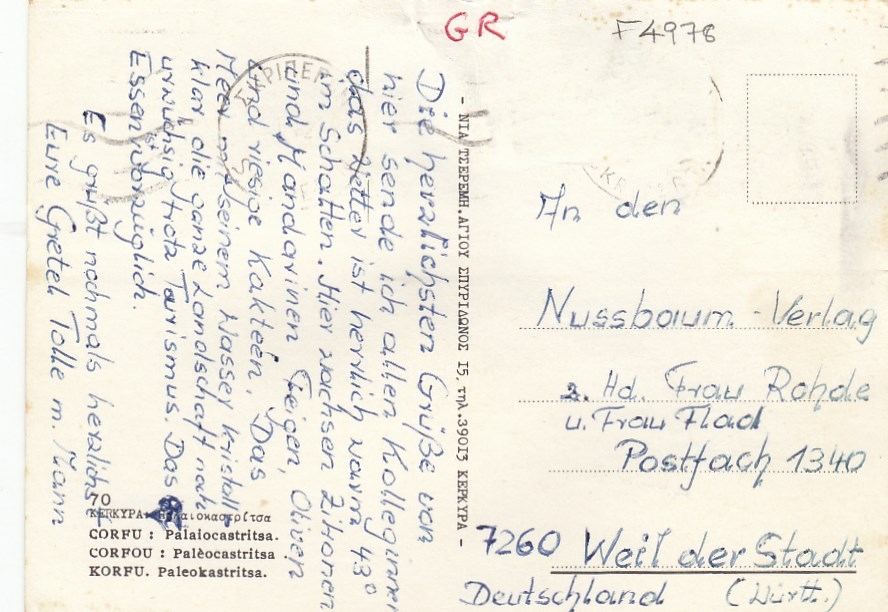 GR
F4978
Die herzlichsten Grüße von
hier sende ich allen Kolleginnen
das Wetter ist herrlich warm 43°
im Schatten. Hier wachsen Zitronen
und Mandarinen Feigen, Oliven
und riesige Kakteen. Das
Meer m. seinem Wasser kristall-
klar, die ganze Landschaft noch
urwüchsig trotz Tourismus. Das
Essen ist vorzüglich.
Es grüßt nochmals herzlichst
Eure Gretel Tolle m. Mann
- ΝΙΑ ΤΣΕΡΕΜΗ. ΑΓΙΟΥ ΣΠΥΡΙΔΩΝΟΣ 15, τηλ. 39013 ΚΕΡΚΥΡΑ -
An den
Nussbaum-Verlag
z. Hd. Frau Rohde
u. Frau Flad
Postfach 1340
7260 Weil der Stadt
Deutschland (Württ.)
70
ΚΕΡΚΥΡΑ: Παλαιοκαστρίτσα
CORFU : Palaiocastritsa.
CORFOU : Palèocastritsa.
KORFU. Paleokastritsa.